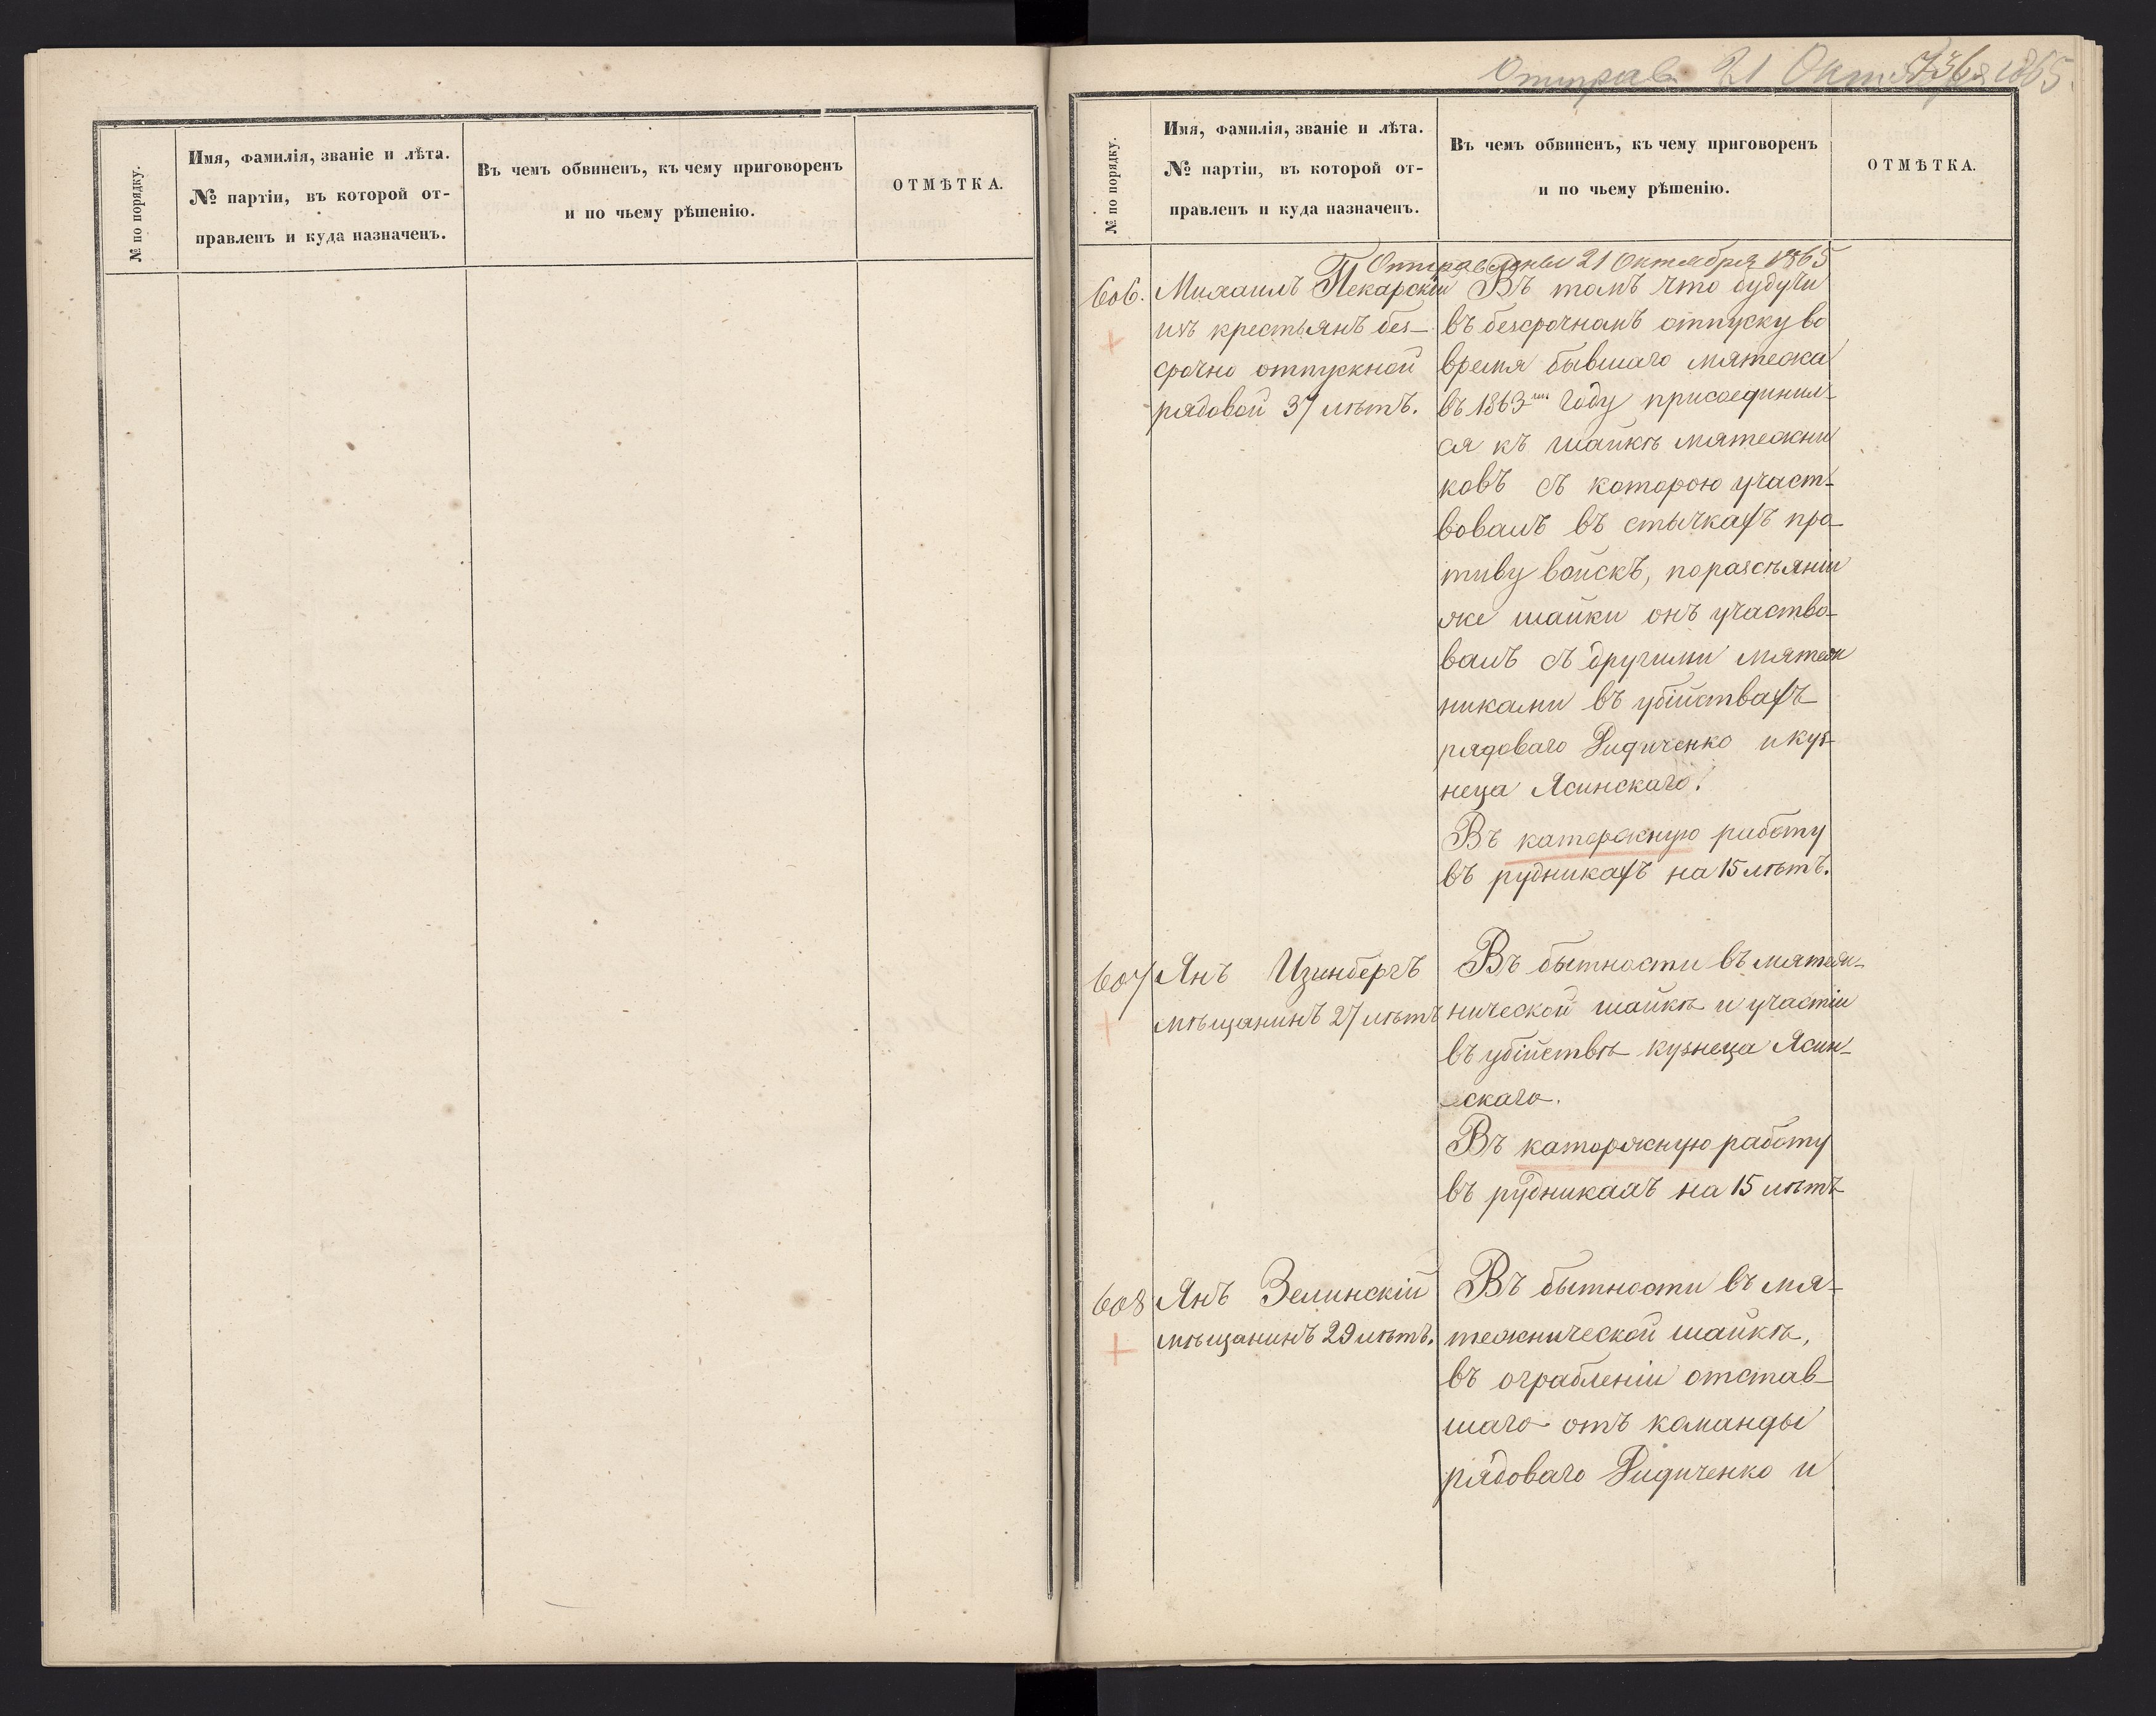 № по порядку.
Имя, фамилія, званіе и лѣта.
№ партіи, въ которой от-
правленъ и куда назначенъ.
Въ чемъ обвиненъ, къ чему приговоренъ
и по чьему рѣшенію.
ОТМѢТКА.
Отправ 21 Октября 1865
№ по порядку.
Имя, фамилія, званіе и лѣта.
№ партіи, въ которой от-
правленъ и куда назначенъ.
Въ чемъ обвиненъ, къ чему приговоренъ
и по чьему рѣшенію.
ОТМѢТКА.
Отправлены 21 Октября 1865
606.
Михаилъ Пекарскій
изъ крестьянъ без-
срочно отпускной
рядовой 37 лѣтъ.
Въ томъ что будучи
въ безсрочномъ отпуску во
время бывшаго мятежа
въ 1863мъ году присоединил-
ся къ шайкѣ мятежни
ковъ съ которою участ-
вовалъ въ стычкахъ про-
тиву войскъ, по разсѣяніи
же шайки онъ участво-
валъ съ другими мятеж
никами въ убійствахъ
рядоваго Дидиченко и куз-
неца Ясинскаго.
Въ каторжную работу
въ рудникахъ на 15 лѣтъ.
607
Янъ Изинбергъ
мѣщанинъ 27 лѣтъ
Въ бытности въ мятеж-
нической шайкѣ и участіи
въ убійствѣ кузнеца Ясин-
скаго.
Въ каторжную работу
въ рудникахъ на 15 лѣтъ
608
Янъ Зелинскій
мѣщанинъ 29 лѣтъ.
Въ бытности въ мя-
тежнической шайкѣ,
въ ограбленіи отстав-
шаго отъ команды
рядоваго Дидиченко и